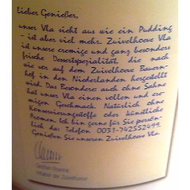 Lieber Genießer,
unser Vla sieht aus wie ein Pudding
- ist aber viel mehr. Zuivelhoeve Vla
ist unsere cremige und ganz besonders
frische Dessertspezialität, die nach
wie vor auf dem Zuivelhoeve Bauern-
hof in den Niederlanden hergestellt
wird. Das Besondere: auch ohne Sahne
hat unser Vla einen vollen und cre-
migen Geschmack. Natürlich ohne
Konservierungsstoffe oder künstliche
Ich bin gerne für Sie persön-
lich da. Telefon 0031-742552499.
Genießen Sie unseren Zuivelhoeve Vla